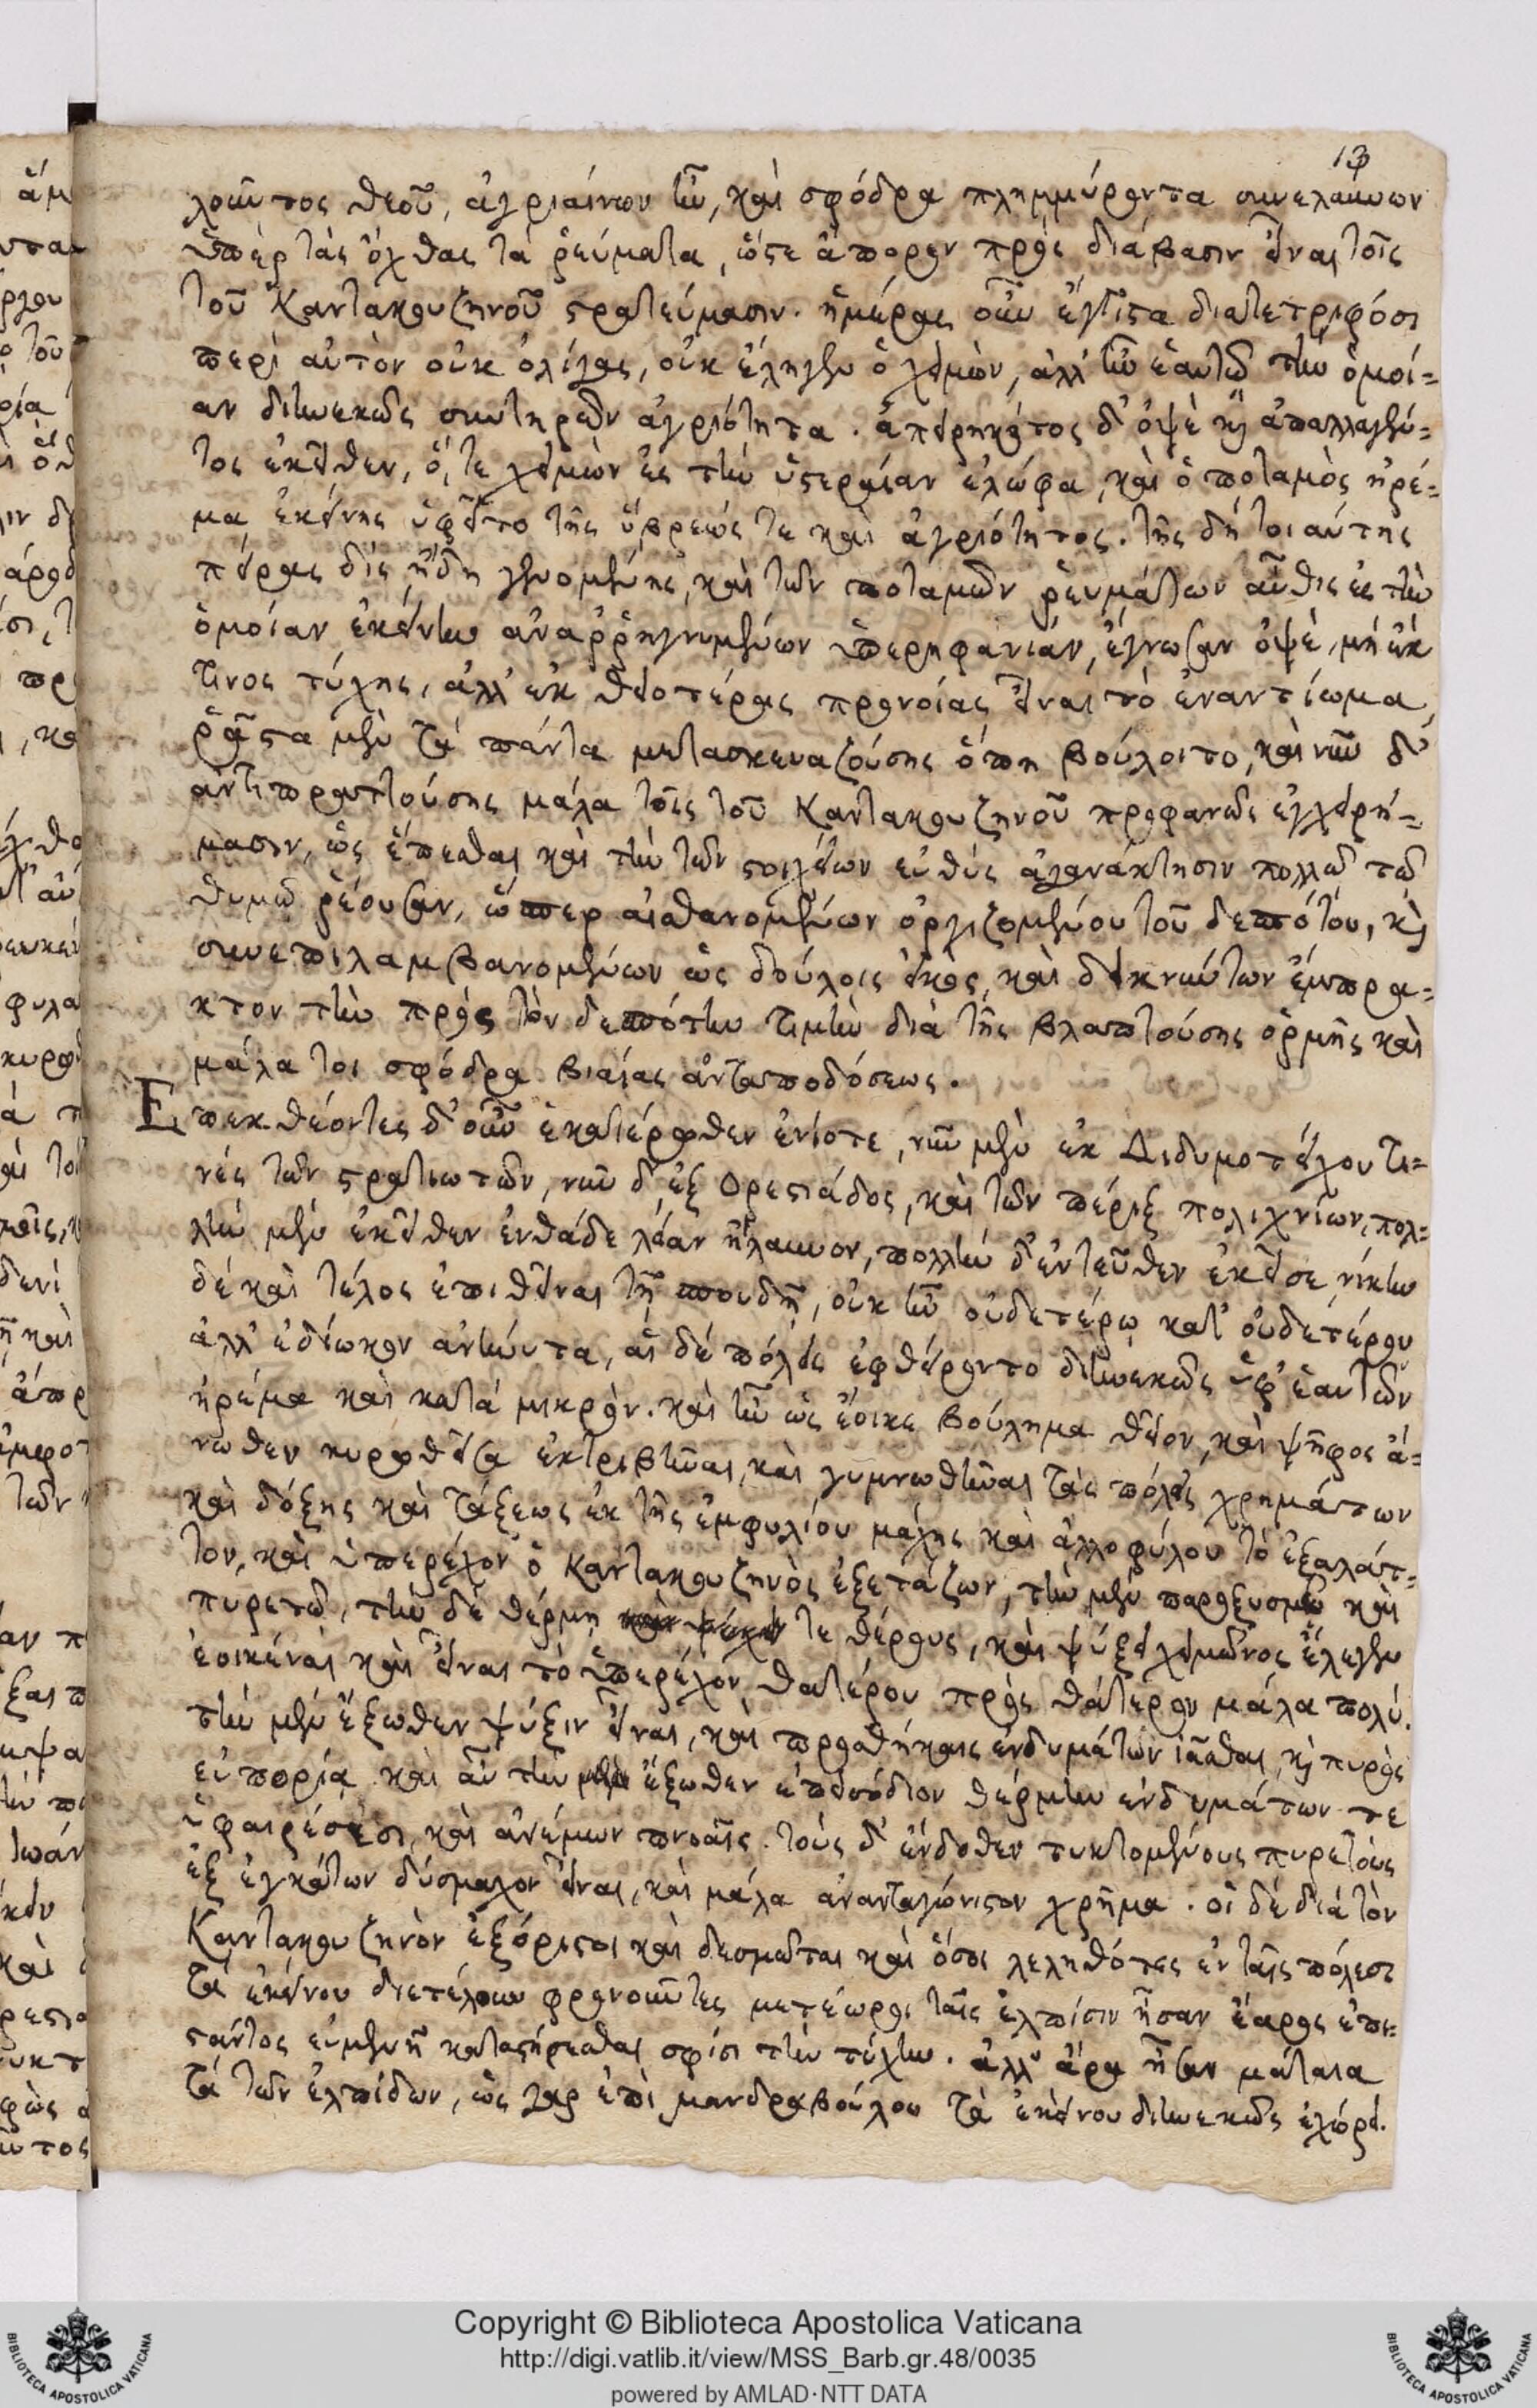 13
λοῦντος θεοῦ, ἀγριαίνων ἦν, καὶ σφόδρα πλημμύροντα συνελαύνων
ὑπὲρ τὰς ὄχθας τὰ ῥεύματα, ὥστε ἄπορον πρὸς διάβασιν εἶναι τοῖς
τοῦ Καντακουζηνοῦ στρατεύμασιν. ἡμέρας οὖν ἔγγιστα διατετριφόσι
περὶ αὐτὸν οὐκ ὀλίγας, οὐκ ἔληγεν ὁ χειμὼν, ἀλλ' ἦν ἑαυτῷ τὴν ὁμοί=
αν διηνεκῶς συντηρῶν ἀγριότητα. ἀπειρηκότος δ' ὀψὲ καὶ ἀπαλλαγέν=
τος ἐκεῖθεν, ὅ, τε χειμὼν ἐς τὴν ὑστεραίαν ἐλώφα, καὶ ὁ ποταμὸς ἠρέ=
μα ἐκείνης ὑφεῖτο τῆς ὕβρεώς τε καὶ ἀγριότητος. τῆς δὴ τοιαύτης
πείρας δὶς ἤδη γενομένης, καὶ τῶν ποταμῶν ῥευμάτων αὖθις ἐς τὴν
ὁμοίαν ἐκείνην ἀναῤῥηγνυμένων ὑπερηφανίαν, ἔγνωσαν ὀψὲ, μὴ ἐκ
τινος τύχης, ἀλλ' ἐκ θειοτέρας προνοίας εἶναι τὸ ἐναντίωμα,
ῥᾷστα μὲν τὰ πάντα μετασκευαζούσης ὅπη βούλοιτο, καὶ νῦν δ'
ἀντιπραττούσης μάλα τοῖς τοῦ Καντακουζηνοῦ προφανῶς ἐγχειρή=
μασιν, ὡς ἕπεσθαι καὶ τὴν τῶν στοιχείων εὐθὺς ἀγανάκτησιν πολλῷ τῷ
θυμῷ ῥέουσαν, ὥσπερ αἰσθανομένων ὀργιζομένου τοῦ δεσπότου, καὶ
συνεπιλαμβανομένων ὡς δούλοις εἰκὸς, καὶ δεικνύντων ἔμπρα=
κτον τὴν πρὸς τὸν δεσπότην τιμὴν διὰ τῆς βλαπτούσης ὁρμῆς καὶ
μάλα τοι σφόδρα βιαίας ἀνταποδόσεως.
Ἐπεκθέοντες δ' οὖν ἑκατέρωθεν ἐνίοτε, νῦν μὲν ἐκ Διδυμοτείχου τι=
νὲς τῶν στρατιωτῶν, νῦν δ' ἐξ Ὀρεστιάδος, καὶ τῶν πέριξ πολιχνίων, πολ=
λὴν μὲν ἐκεῖθεν ἐνθάδε λείαν ἤλαυνον, πολλὴν δ' ἐντεῦθεν ἐκεῖσε, νίκην
δὲ καὶ τέλος ἐπιθεῖναι τῇ σπουδῇ, οὐκ ἦν οὐδετέρῳ κατ' οὐδετέρου
ἀλλ' ἐδίωκον ἀνήνυτα, αἱ δὲ πόλεις ἐφθείροντο διηνεκῶς ὑφ' ἑαυτῶν
ἠρέμα καὶ κατὰ μικρόν. καὶ ἦν ὡς ἔοικε βούλημα θεῖον, καὶ ψῆφος ἄ=
νωθεν κυρωθεῖσα ἐκτριβῆναι, καὶ γυμνωθῆναι τὰς πόλεις χρημάτων
καὶ δόξης καὶ τάξεως ἐκ τῆς ἐμφυλίου μάχης καὶ ἀλλοφύλου τὸ ἐξαλάτ=
τον, καὶ ὑπερέχον ὁ Καντακουζηνὸς ἐξετάζων, τὴν μὲν παροξυσμῷ καὶ
πυρετῷ, τὴν δὲ θέρμῃ τε θέρους, καὶ ψύξει χειμῶνος ἔλεγεν
ἐοικέναι καὶ εἶναι τὸ ὑπερέχον θατέρου πρὸς θάτερον μάλα πολύ.
τὴν μὲν ἔξωθεν ψύξιν εἶναι, καὶ προσθήκαις ἐνδυμάτων ἰᾶσθαι, καὶ πυρὸς
εὐπορίᾳ καὶ αὖ τὴν ἔξωθεν ἐπεισόδιον θέρμην ἐνδυμάτων τε
ὑφαιρέσεσι, καὶ ἀνέμων πνοαῖς. τοὺς δ' ἔνδοθεν τικτομένους πυρετοὺς
ἐξ ἐγκάτων δύσμαχον εἶναι, καὶ μάλα ἀνανταγώνιστον χρῆμα. οἱ δὲ διὰ τὸν
Καντακουζηνὸν ἐξόριστοι καὶ δεσμῶται καὶ ὅσοι λεληθότες ἐν ταῖς πόλεσι
τὰ ἐκείνου διετέλουν φρονοῦντες μετέωροι ταῖς ἐλπίσιν ἦσαν ἔαρος ἐπι=
στάντος εὐμενῆ καταστήσεσθαι σφίσι τὴν τύχην. ἀλλ' ἄρα ἦσαν μάταια
τὰ τῶν ἐλπίδων, ὡς γὰρ ἐπὶ μανδραβούλου τὰ ἐκείνου διηνεκῶς ἐχώρει.
Copyright © Biblioteca Apostolica Vaticana
http://digi.vatlib.it/view/MSS_Barb.gr.48/0035
powered by AMLAD·NTT DATA
BIBLIOTECA APOSTOLICA VATICANA
BIBLIOTECA APOSTOLICA VATICANA